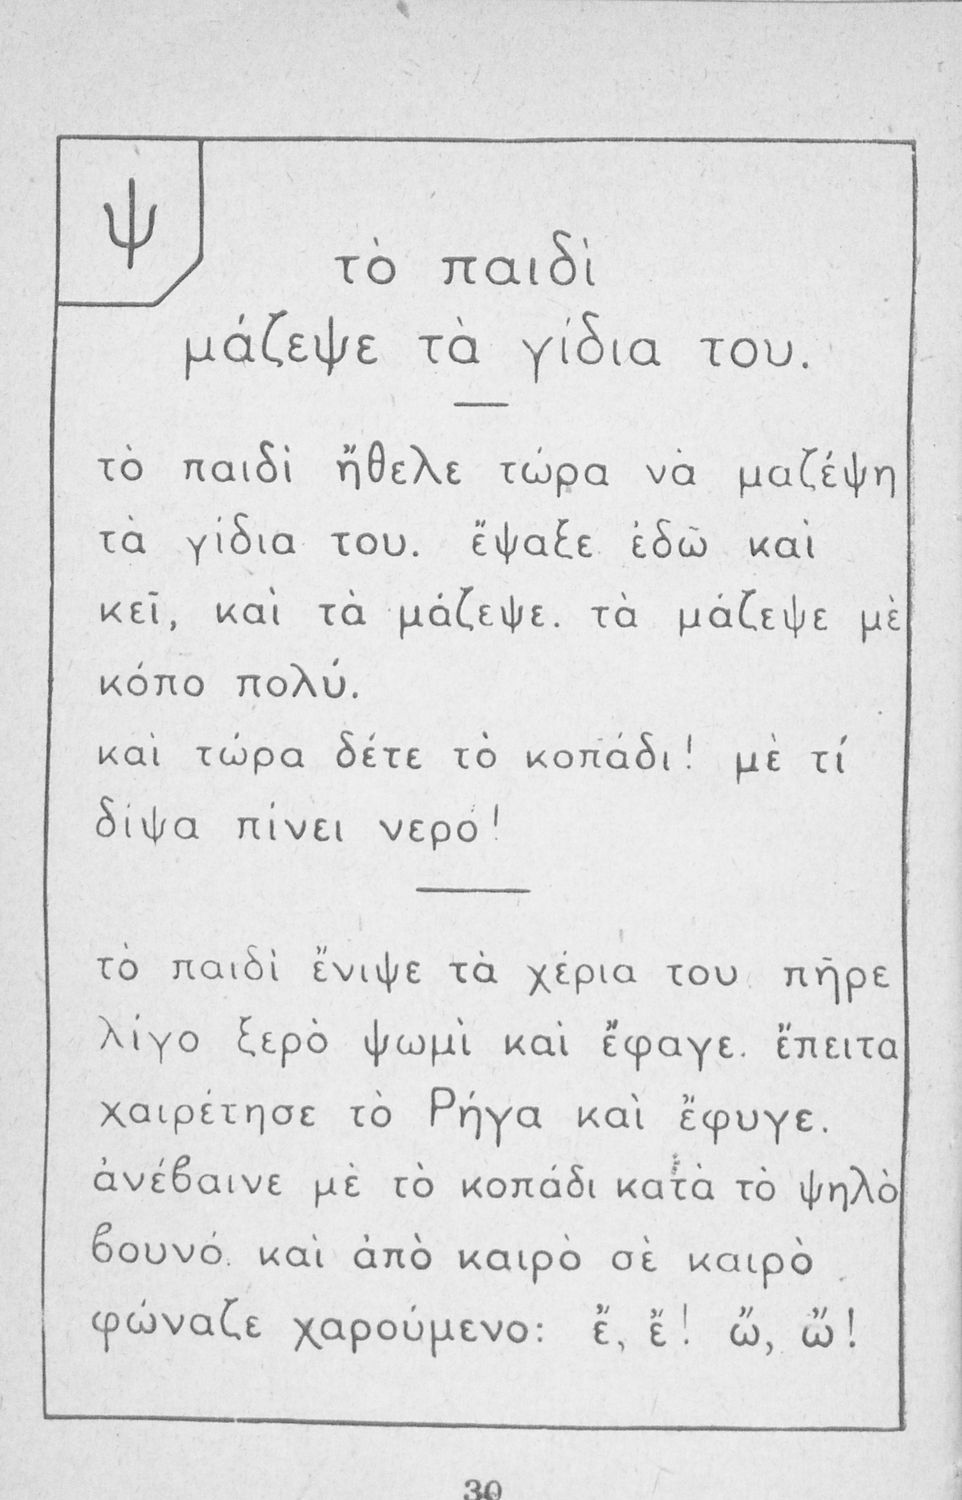 ψ
τὸ παιδὶ
μάζεψε τὰ γίδια του.
τὸ παιδὶ ἤθελε τώρα νὰ μαζέψη
τὰ γίδια του. ἔψαξε ἐδῶ καὶ
κεῖ, καὶ τὰ μάζεψε. τὰ μάζεψε μὲ
κόπο πολύ.
καὶ τώρα δέτε τὸ κοπάδι! μὲ τί
δίψα πίνει νερό!
τὸ παιδὶ ἔνιψε τὰ χέρια του. πῆρε
λίγο ξερὸ ψωμὶ καὶ ἔφαγε. ἔπειτα
χαιρέτησε τὸ Ρήγα καὶ ἔφυγε.
ἀνέβαινε μὲ τὸ κοπάδι κατὰ τὸ ψηλὸ
βουνό. καὶ ἀπὸ καιρὸ σὲ καιρὸ
φώναζε χαρούμενο: ἔ, ἔ! ὤ, ὤ!
30